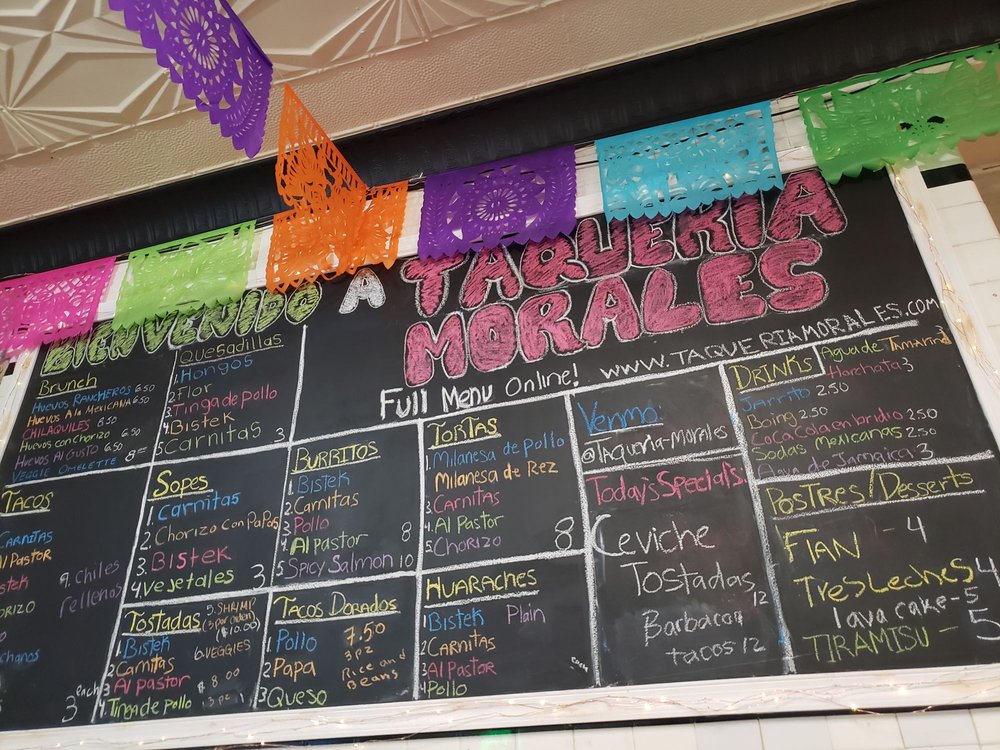 BIENVENIDO A TAQUERIA
MORALES
Full Menu Online! www.TAQUERIAMORALES.COM
Brunch
HUEVOS RANCHEROS 6.50
HUEVOS A la MEXICANA 6.50
CHILAQUILES 8.50
Huevos con Chorizo 6.50
HUEVOS Al GUSTO 6.50
VEGGIE OMELETTE 8
Quesadillas
1. Hongos
2. Flor
3. Tinga de pollo
4. Bistek
5. Carnitas 3
TACOS
CARNITAS
Al PASTOR
9. Chiles
rellenos
each
3
Sopes
1. Carnitas
2. Chorizo con Papas
3. Bistek
4. Vejetales 3
Tostadas
1. Bistek
2. Carnitas
3. Al pastor
4. Tinga de pollo
5. SHRIMP
(3 por orden)
($10.00)
6. VEGGIES
$ 8.00
3 pc
BURRITOS
1. Bistek
2. Carnitas
3. Pollo
4. Al pastor 8
5. Spicy Salmon 10
Tacos Dorados
1. Pollo
2. Papa
3. Queso
7.50
3 pz
Rice and
Beans
TORTAS
1. Milanesa de Pollo
2. Milanesa de Rez
3. Carnitas
4. Al Pastor
5. Chorizo 8
HUARACHES
1. Bistek Plain
2. CARNITAS
3. Al Pastor
4. Pollo
Venmo
@TAqueria-Morales
Today's Special's
Ceviche
Tostadas
12
Barbacoa
tacos 12
DRINKS
Agua de Tamarind 3
Horchata 3
Jarrito 2.50
Boing 2.50
Coca Cola en bridio 2.50
Sodas Mexicanas 2.50
Agua de Jamaica 3
POSTRES/Desserts
FlAN - 4
Tres Leches 4
lava cake - 5
TIRAMISU - 5